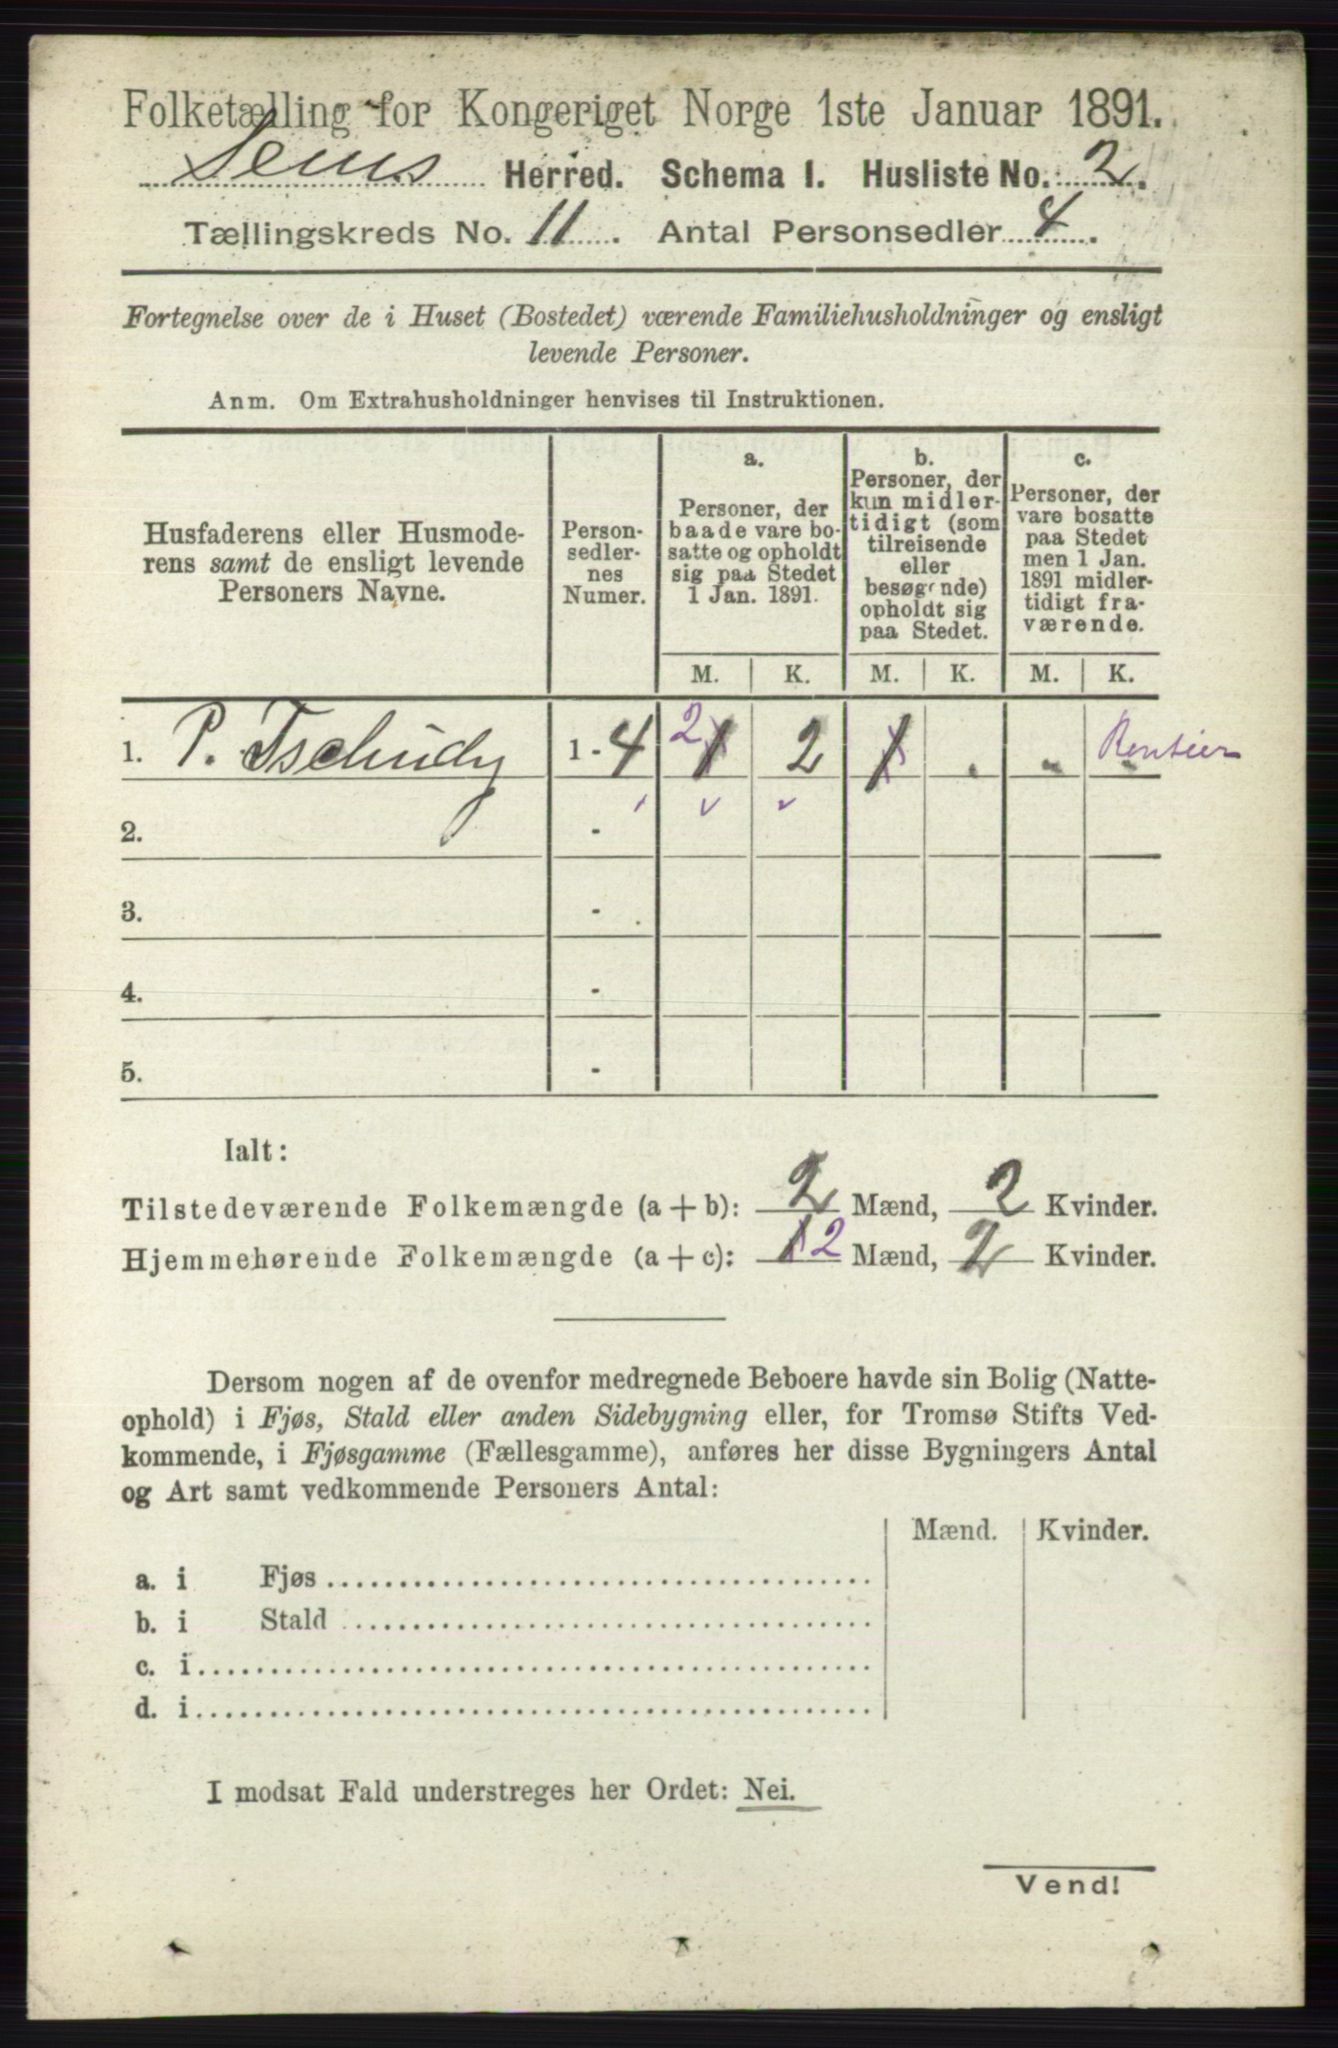 Folketælling for Kongeriget Norge 1ste Januar 1891.
Sems Herred. Schema I. Husliste No. 2.
Tællingskreds No. 11. Antal Personsedler 4.
Fortegnelse over de i Huset (Bostedet) værende Familiehusholdninger og ensligt
levende Personer.
Anm. Om Extrahusholdninger henvises til Instruktionen.
Husfaderens eller Husmode-
rens samt de ensligt levende
Personers Navne.
Person-
sedler-
nes
Numer.
a.
Personer, der
baade vare bo-
satte og opholdt
sig paa Stedet
1 Jan. 1891.
b.
Personer, der
kun midler-
tidigt (som
tilreisende
eller
besøgende)
opholdt sig
paa Stedet.
c.
Personer, der
vare bosatte
paa Stedet
men 1 Jan.
1891 midler-
tidigt fra-
værende.
M. K. M. K. M. K.
1. P. Tschudy 1 - 4 2 1 2 1 . „ „ Rentier
2. -
3. -
4. -
5. -
Ialt:
Tilstedeværende Folkemængde (a + b): 2 Mænd, 2 Kvinder.
Hjemmehørende Folkemængde (a + c): 1 2 Mænd, 2 Kvinder.
Dersom nogen af de ovenfor medregnede Beboere havde sin Bolig (Natte-
ophold) i Fjøs, Stald eller anden Sidebygning eller, for Tromsø Stifts Ved-
kommende, i Fjøsgamme (Fællesgamme), anføres her disse Bygningers Antal
og Art samt vedkommende Personers Antal:
Mænd. Kvinder.
a. i Fjøs
b. i Stald
c. i
d. i
I modsat Fald understreges her Ordet: Nei.
Vend!